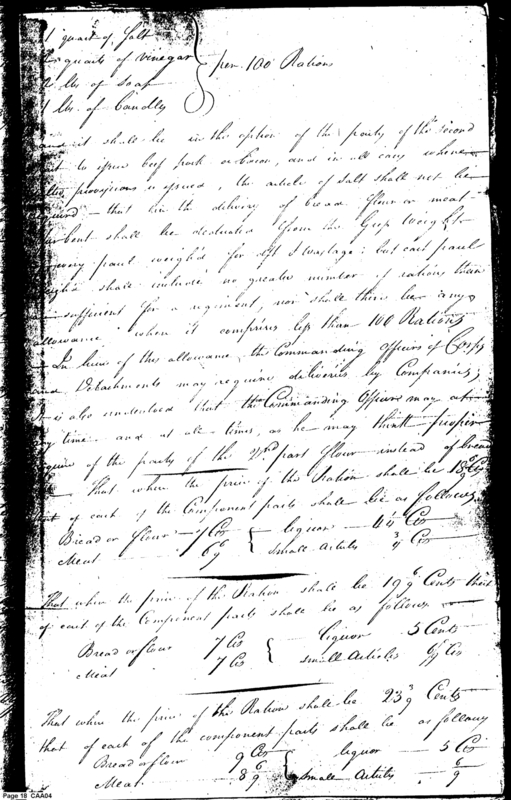 1 quart of Salt
quarts of vinegar } per 100 Rations
lbs of soap
1 lb. of Candles
it shall be in the option of the party of the second
to issue beef pork or bacon, and in all cases where
provisions is issued, the article of salt shall not be
that in the delivery of bread flour or meat
shall be deducted from the Gross Weight
every parcel weigh'd for & wastage: but each parcel
shall include no greater number of rations than
sufficient for a regiment, nor shall there be any
allowance when it comprises less than 100 Rations
In lieu of this allowance the Commanding Officers of Corps
and Detachments may require deliveries by Companies;
It is also understood that the Commanding Officer may at
time and at all times, as he may think proper
of the party of the 2nd part flour instead of bread
That when the price of the Ration shall be 18 Cts
of each of the Component parts shall be as follows,
Bread or flour 7 Cts { liquor 4 Cts
Meat 6 small Articles Cts
That when the price of the Ration shall be 19 Cents that
of each of the Component parts shall be as follows
Bread or flour 7 Cts { liquor 5 Cents
Meat 7 Cts small Articles Cts
That when the price of the Ration shall be 23 Cents
that of each of the component parts shall be as follows
Bread or flour 9 Cts { liquor 5 Cts
Meat 8 small Articles
Page 18 CAA04